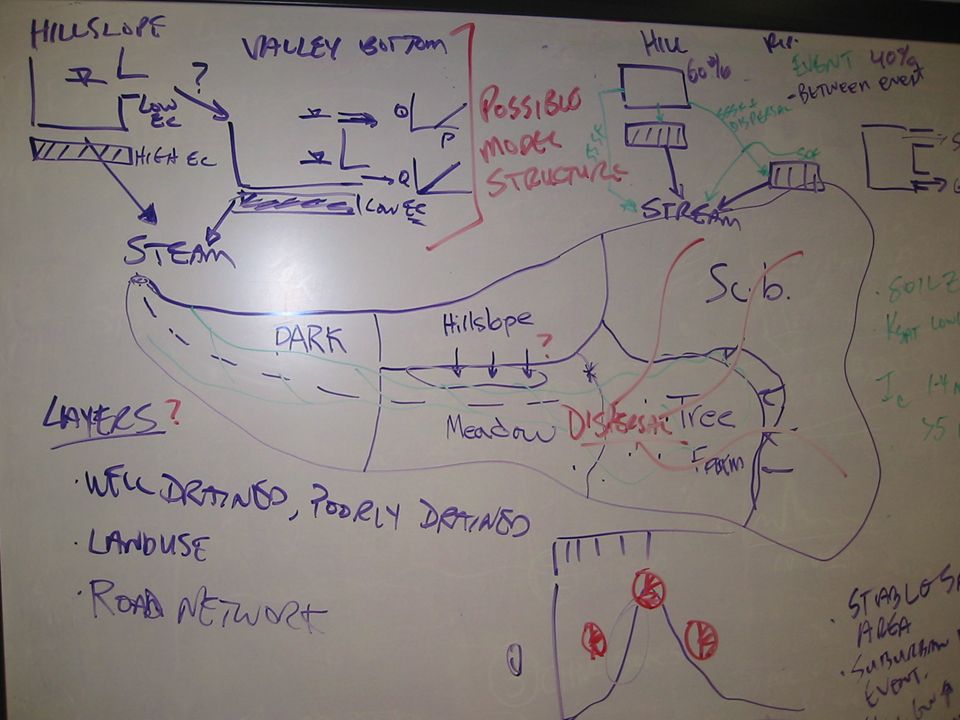 HILLSLOPE
?
LOW
EC
HIGH EC
STEAM
VALLEY BOTTOM
Q
P
Q
LOW EC
POSSIBLE
MODEL
STRUCTURE
HILL
60%
RIP.
EVENT 40%
- BETWEEN EVENT
DISPERSAL
SOF
STREAM
DARK
Hillslope
?
Meadow
DISPERSAL
Tree
Scrb.
LAYERS?
· WELL DRAINED, POORLY DRAINED
· LANDUSE
· ROAD NETWORK
· SOIL Z
KSAT LOW
Ic 1-4 m
>5
Q
· STABLE
AREA
· SUBURBAN
EVENT.